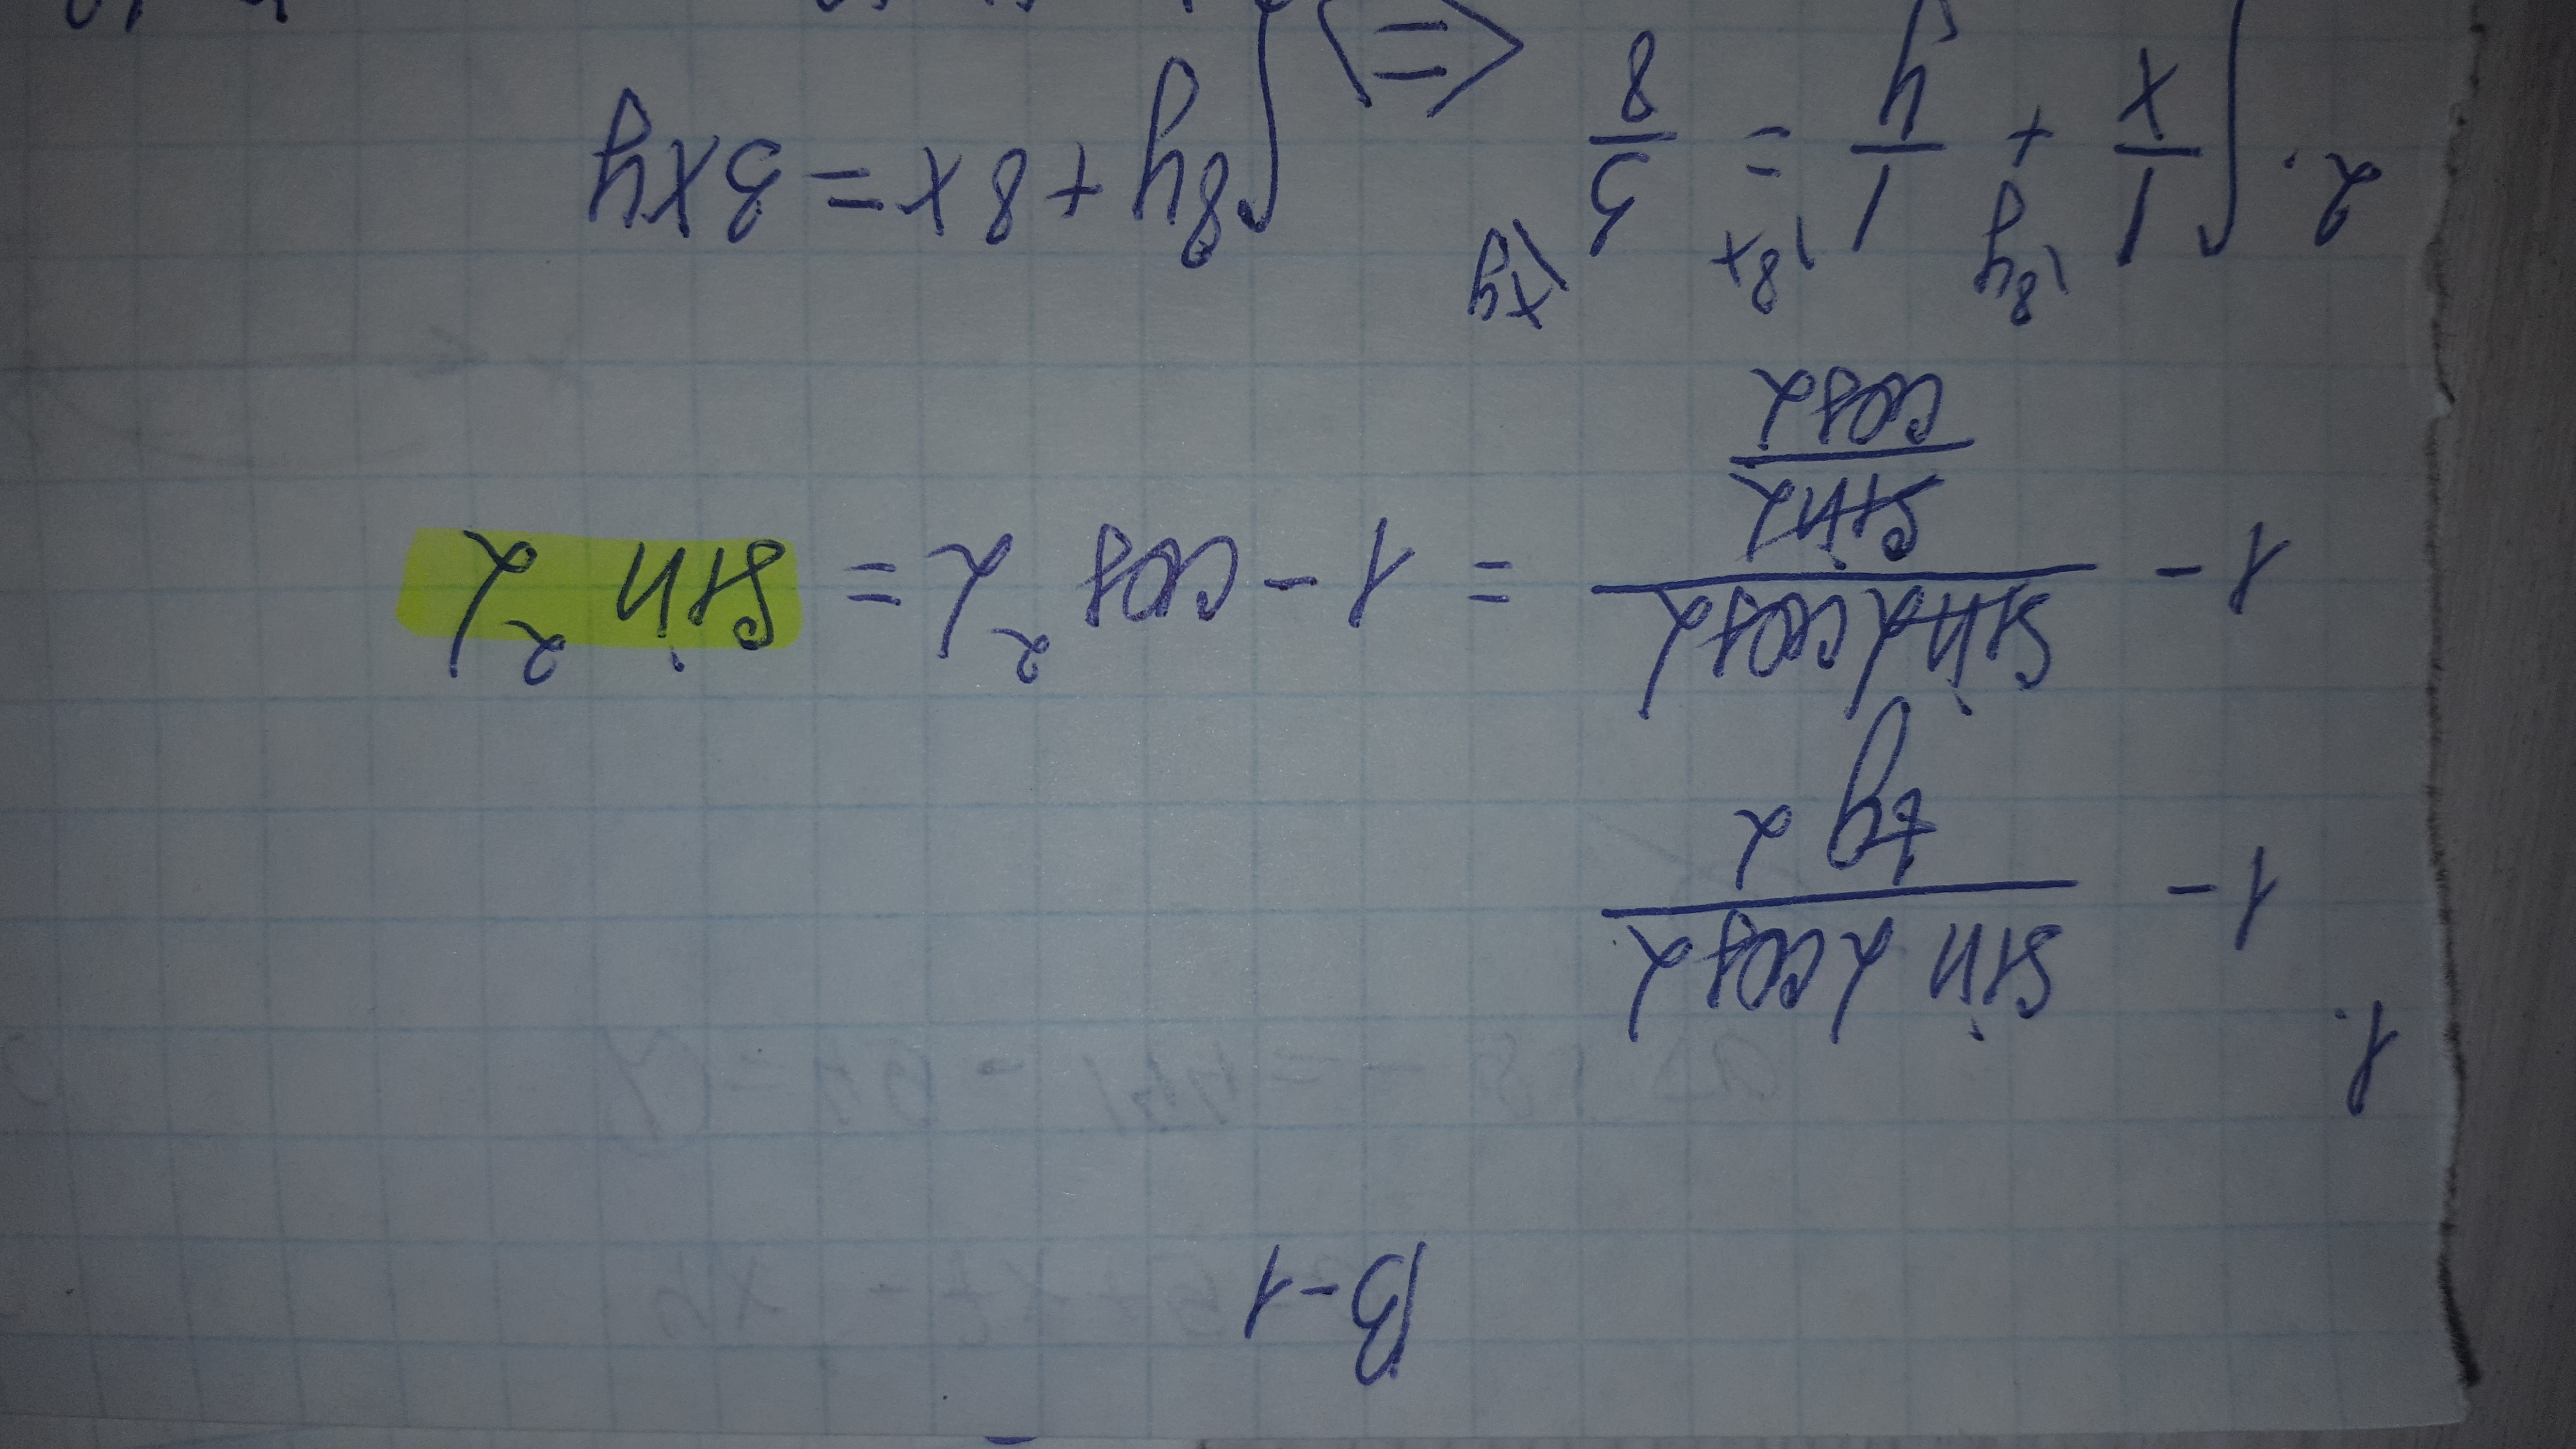 B-1
1.
1 - sin α cos α / tg α
1 - sin α cos α / (sin α / cos α) = 1 - cos² α = sin² α
2. { 1/x \8y + 1/y \8x = 3/8 \xy <=> { 8y + 8x = 3xy